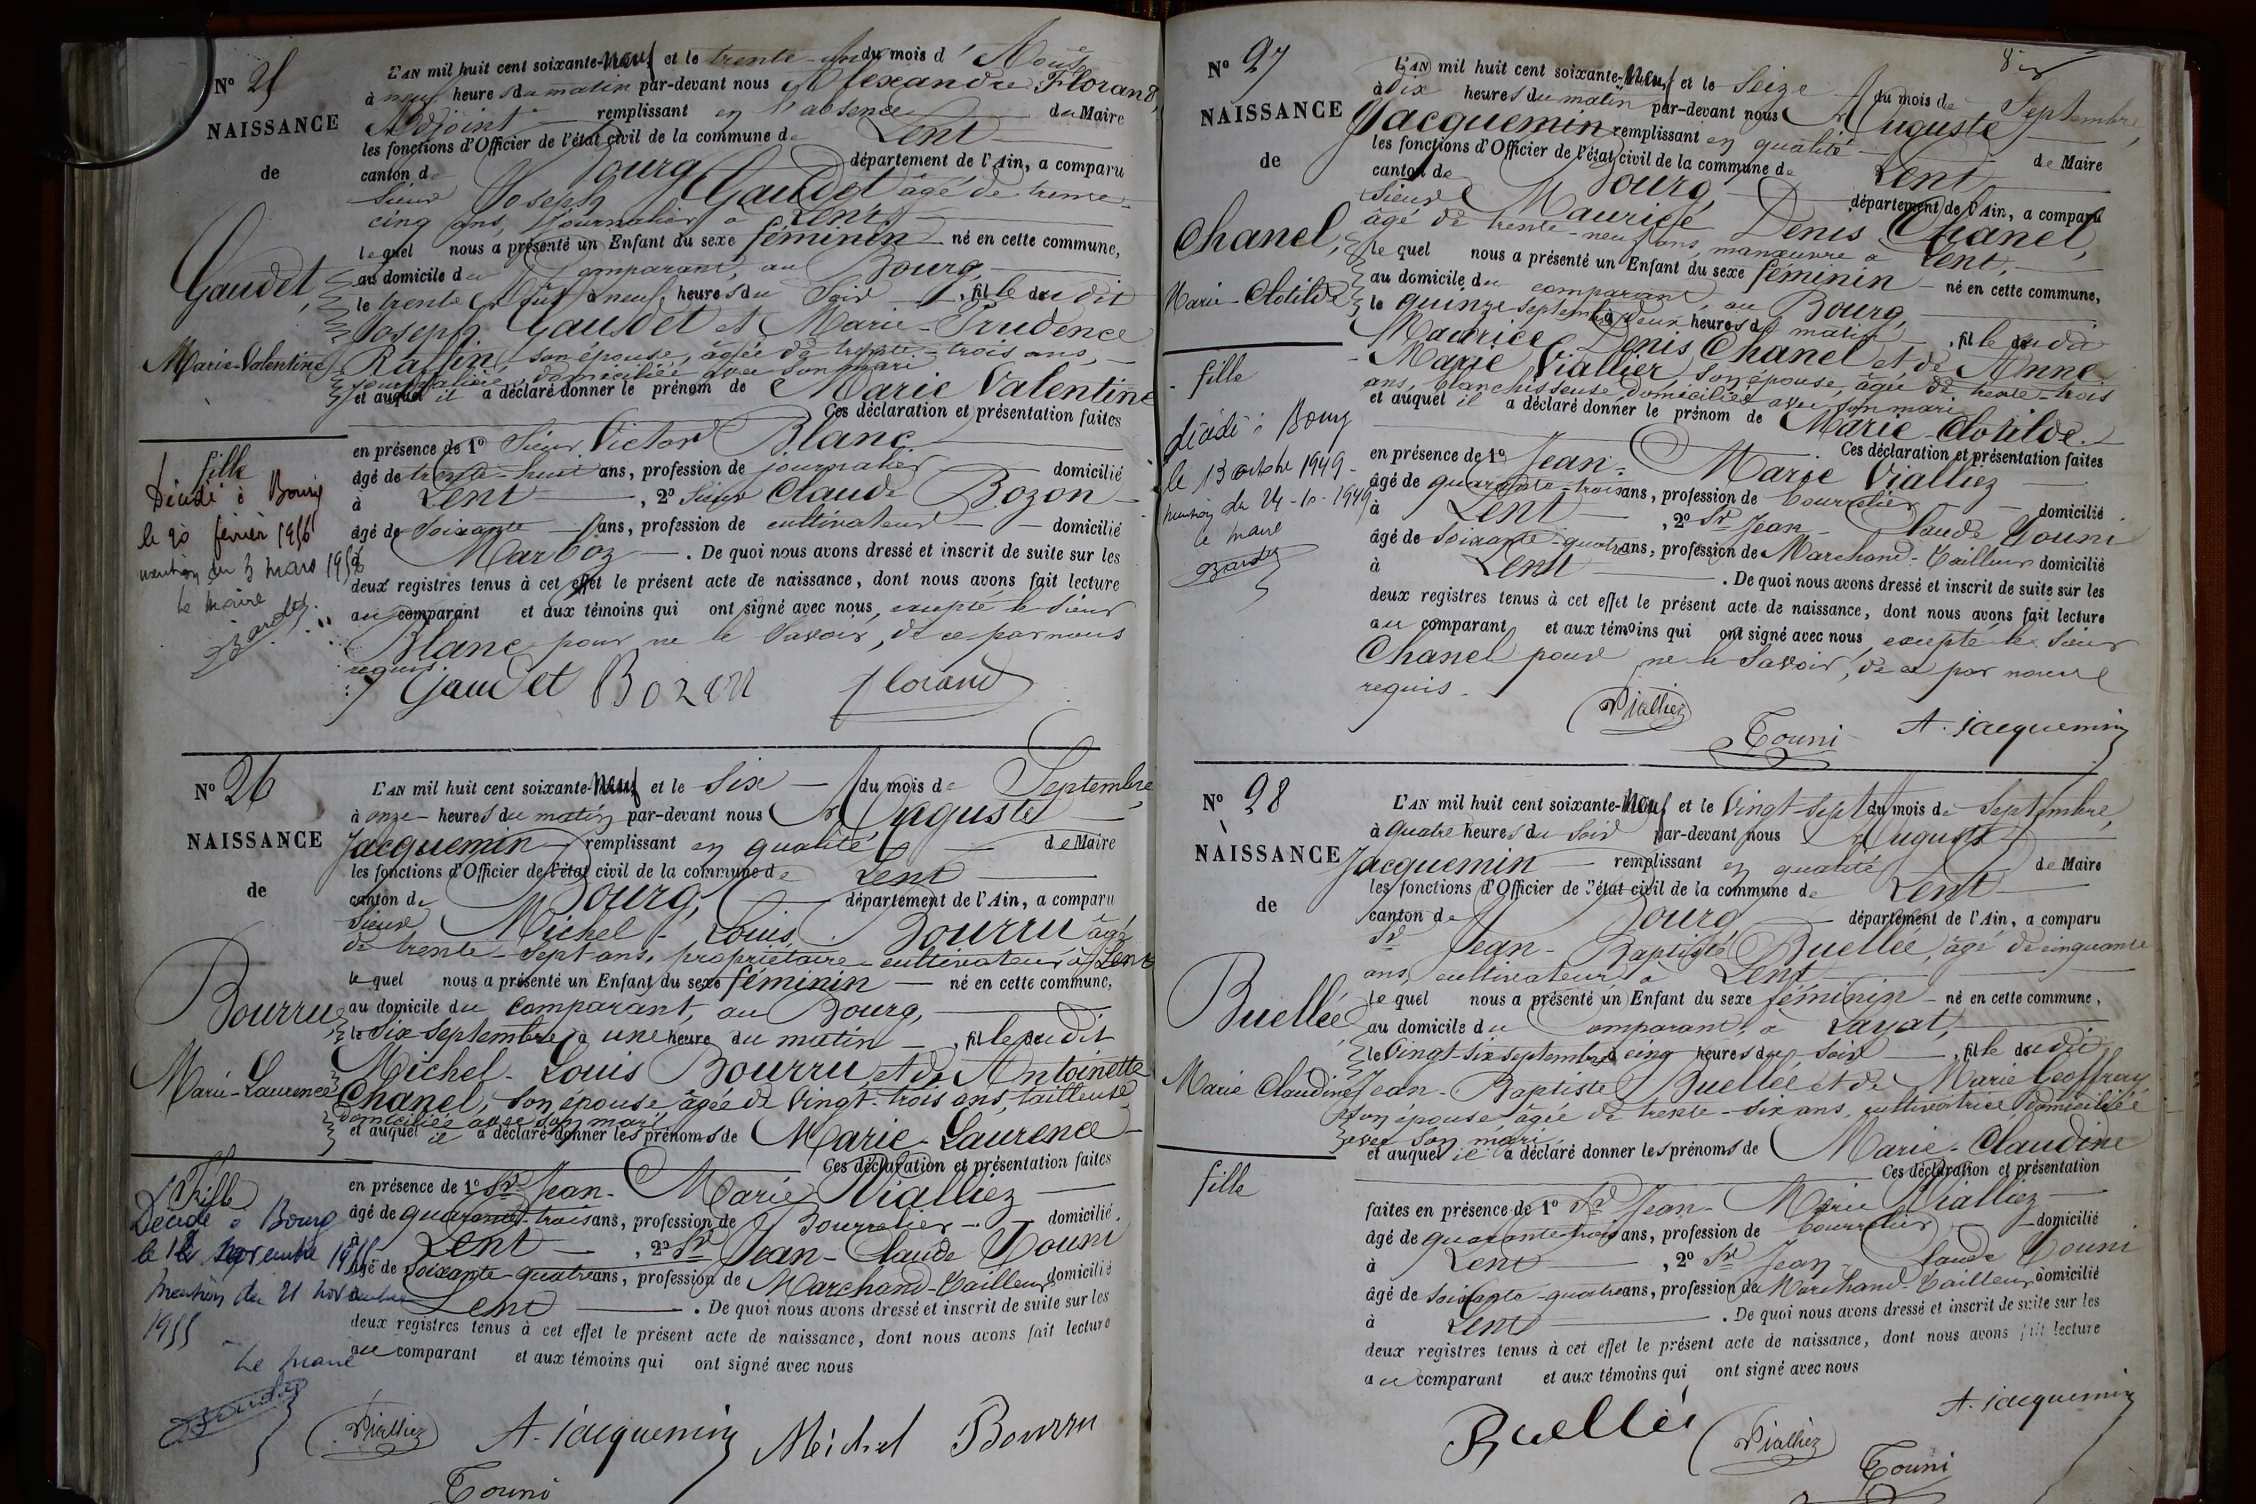 N° 25
NAISSANCE
de
Gaudet,
Marie-Valentine
fille
Décédé à Bourg
le 20 février 1956
mention du 3 mars 1956
le maire
L'AN mil huit cent soixante-neuf et le trente-un du mois d'Août
à neuf heures du matin par-devant nous Alexandre Florand,
Adjoint remplissant en l'absence du Maire
les fonctions d'Officier de l'état civil de la commune de Lent
canton de Bourg département de l'Ain, a comparu
Sieur Joseph Gaudet âgé de trente-
cinq ans, journalier à Lent,
lequel nous a présenté un Enfant du sexe féminin né en cette commune,
au domicile du comparant, au Bourg,
le trente Août à neuf heures du soir, fille du dit
Joseph Gaudet et Marie-Prudence
Raffin, son épouse, âgée de trente-trois ans,
journalière, domiciliée avec son mari
et auquel il a déclaré donner le prénom de Marie Valentine
Ces déclaration et présentation faites
en présence de 1° Sieur Victor Blanc
âgé de trente-huit ans, profession de journalier domicilié
à Lent, 2° Sieur Claude Bozon
âgé de soixante ans, profession de cultivateur domicilié
Marboz. De quoi nous avons dressé et inscrit de suite sur les
deux registres tenus à cet effet le présent acte de naissance, dont nous avons fait lecture
au comparant et aux témoins qui ont signé avec nous, excepté le Sieur
Blanc pour ne le savoir, de ce par nous
requis.
Gaudet Bozon Florand
N° 26
NAISSANCE
de
Bourru
Marie-Laurence
Fille
Décédé à Bourg
le novembre 1955
mention du 21 novembre
1955
Le maire
L'AN mil huit cent soixante-neuf et le six du mois de Septembre,
à onze heures du matin par-devant nous Auguste
Jacquemin remplissant en qualité de Maire
les fonctions d'Officier de l'état civil de la commune de Lent
canton de Bourg, département de l'Ain, a comparu
Sieur Michel-Louis Bourru âgé
de trente-sept ans, propriétaire-cultivateur à Lent
lequel nous a présenté un Enfant du sexe féminin né en cette commune,
au domicile du comparant, au Bourg,
le six septembre à une heure du matin, fille du dit
Michel-Louis Bourru et de Antoinette
Chanel, son épouse âgée de vingt-trois ans, tailleuse
domiciliée avec son mari
et auquel il a déclaré donner les prénoms de Marie-Laurence
Ces déclaration et présentation faites
en présence de 1° Sr Jean-Marie Vialliez
âgé de quarante-trois ans, profession de Bourrelier domicilié
à Lent, 2° Sr Jean-Claude Touni
âgé de soixante-quatre ans, profession de Marchand-Tailleur domicilié
à Lent. De quoi nous avons dressé et inscrit de suite sur les
deux registres tenus à cet effet le présent acte de naissance, dont nous avons fait lecture
au comparant et aux témoins qui ont signé avec nous
Vialliez A. Jacquemin Michel Bourru
Touni
N° 27
NAISSANCE
de
Chanel,
Marie-Clotilde
fille
décédé à Bourg
le 13 octobre 1949
mention du 24-10-1949
le maire
L'AN mil huit cent soixante-neuf et le seize du mois de Septembre,
à dix heures du matin par-devant nous Auguste
Jacquemin remplissant en qualité de Maire
les fonctions d'Officier de l'état civil de la commune de Lent
canton de Bourg, département de l'Ain, a comparu
Sieur Maurice Denis Chanel,
âgé de trente-neuf ans, manœuvre à Lent,
lequel nous a présenté un Enfant du sexe féminin né en cette commune,
au domicile du comparant, au Bourg,
le quinze septembre à deux heures du matin, fille du dit
Maurice Denis Chanel et de Anne
Marie Viallier son épouse, âgée de trente-trois
ans, blanchisseuse, domiciliée avec son mari
et auquel il a déclaré donner le prénom de Marie-Clotilde.
Ces déclaration et présentation faites
en présence de 1° Jean-Marie Vialliez
âgé de quarante-trois ans, profession de bourrelier domicilié
à Lent, 2° Sr Jean-Claude Touni
âgé de soixante-quatre ans, profession de Marchand-Tailleur domicilié
à Lent. De quoi nous avons dressé et inscrit de suite sur les
deux registres tenus à cet effet le présent acte de naissance, dont nous avons fait lecture
au comparant et aux témoins qui ont signé avec nous, excepté le Sieur
Chanel pour ne le savoir, de ce par nous
requis.
Vialliez
Touni A. Jacquemin
N° 28
NAISSANCE
de
Buellée
Marie Claudine
fille
L'AN mil huit cent soixante-neuf et le vingt-sept du mois de Septembre,
à quatre heures du soir par-devant nous Auguste
Jacquemin remplissant en qualité de Maire
les fonctions d'Officier de l'état civil de la commune de Lent
canton de Bourg département de l'Ain, a comparu
Sr Jean-Baptiste Buellée, âgé de cinquante
ans, cultivateur à Lent,
lequel nous a présenté un Enfant du sexe féminin né en cette commune,
au domicile du comparant, à Layat,
le vingt-six septembre à cinq heures du soir, fille du dit
Jean-Baptiste Buellée et de Marie Geoffray
son épouse âgée de trente-six ans, cultivatrice domiciliée
avec son mari
et auquel il a déclaré donner les prénoms de Marie-Claudine
Ces déclaration et présentation
faites en présence de 1° Sr Jean-Marie Vialliez
âgé de quarante-trois ans, profession de bourrelier domicilié
à Lent, 2° Sr Jean-Claude Touni
âgé de soixante-quatre ans, profession de Marchand-Tailleur domicilié
à Lent. De quoi nous avons dressé et inscrit de suite sur les
deux registres tenus à cet effet le présent acte de naissance, dont nous avons fait lecture
au comparant et aux témoins qui ont signé avec nous
Buellée Vialliez A. Jacquemin
Touni